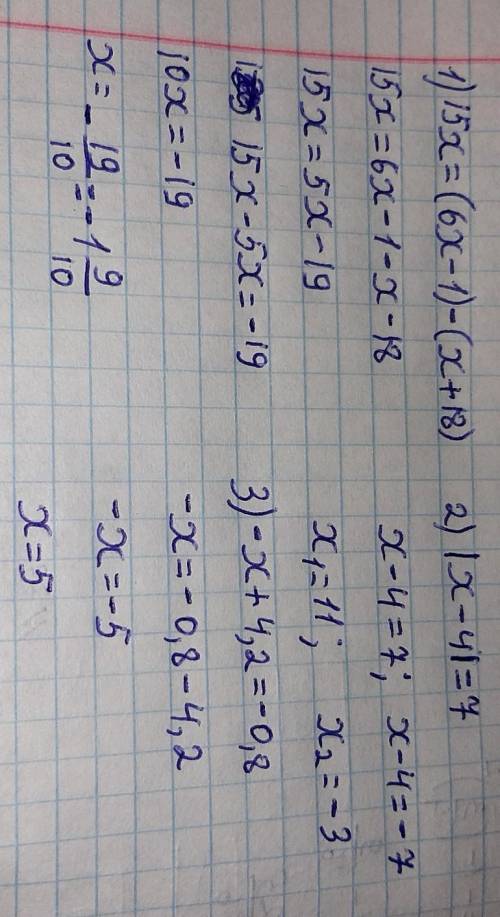 1) 15x=(6x-1)-(x+18)
15x=6x-1-x-18
15x=5x-19
15x-5x=-19
10x=-19
x=-19/10=-1 9/10
2) |x-4|=7
x-4=7; x-4=-7
x₁=11; x₂=-3
3) -x+4,2=-0,8
-x=-0,8-4,2
-x=-5
x=5